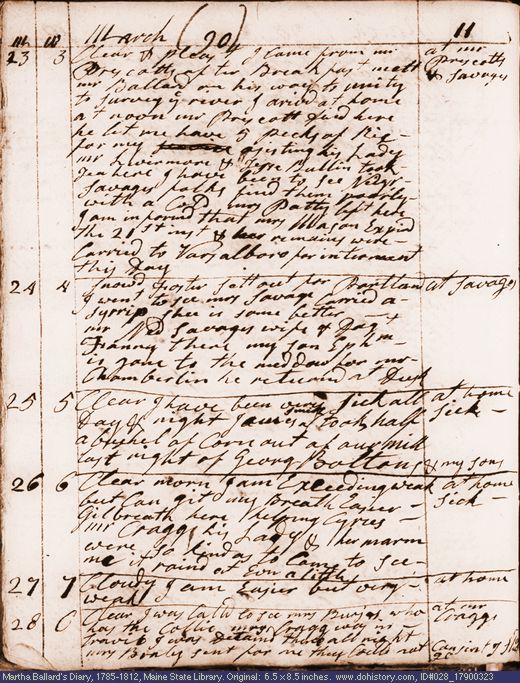 March (20) 11
23 3 Clear & pleast I came from mr at mr
Prescotts after Breakfast mett Prescotts
mr Ballard on his way to unity & Savages
to survey ye river I arivd at home
at noon mr Priscott dind here
he let me have 5 Pecks of Rie
for my asisting his Lady
mr Livermore & Jesse Bullin took
Tea here I have been to see
Savages folks find them
with a Cold mrs Patty left here
I am informd that mrs Mason Expird
the 21st inst & her remains were
Carried to Vassalboro for interment
this Day
24 4 Snowd Foster sett out for Portland at Savages
I went to see mrs Savage Carried a
syrrip shee is some better
mr Savages wife &
Franny there my son Ephm
is gone to the meddow for mr
Chamberlin he returnd at Dusk
25 5 Clear I have been very sick all at home
Day & night took half sick
a bushel of Corn out of our mill
last night of Georg Boltons & my sons
26 6 Clear morn I am Exceeding weak at home
but Can git my Breath Easier sick
Gilbreath here helping Cyrus
mr Cragg his Lady & her marm
were so kind as to Come to see
me it raind at Evn a litle
27 7 Cloudy I am Easier but very at home
weak
28 C Clear I was Calld to see mrs Burges who at mr
has the Colic mrs Cragg was in Craggs
travel & I was detaind there all night
mrs Brally sent for me they Calld not